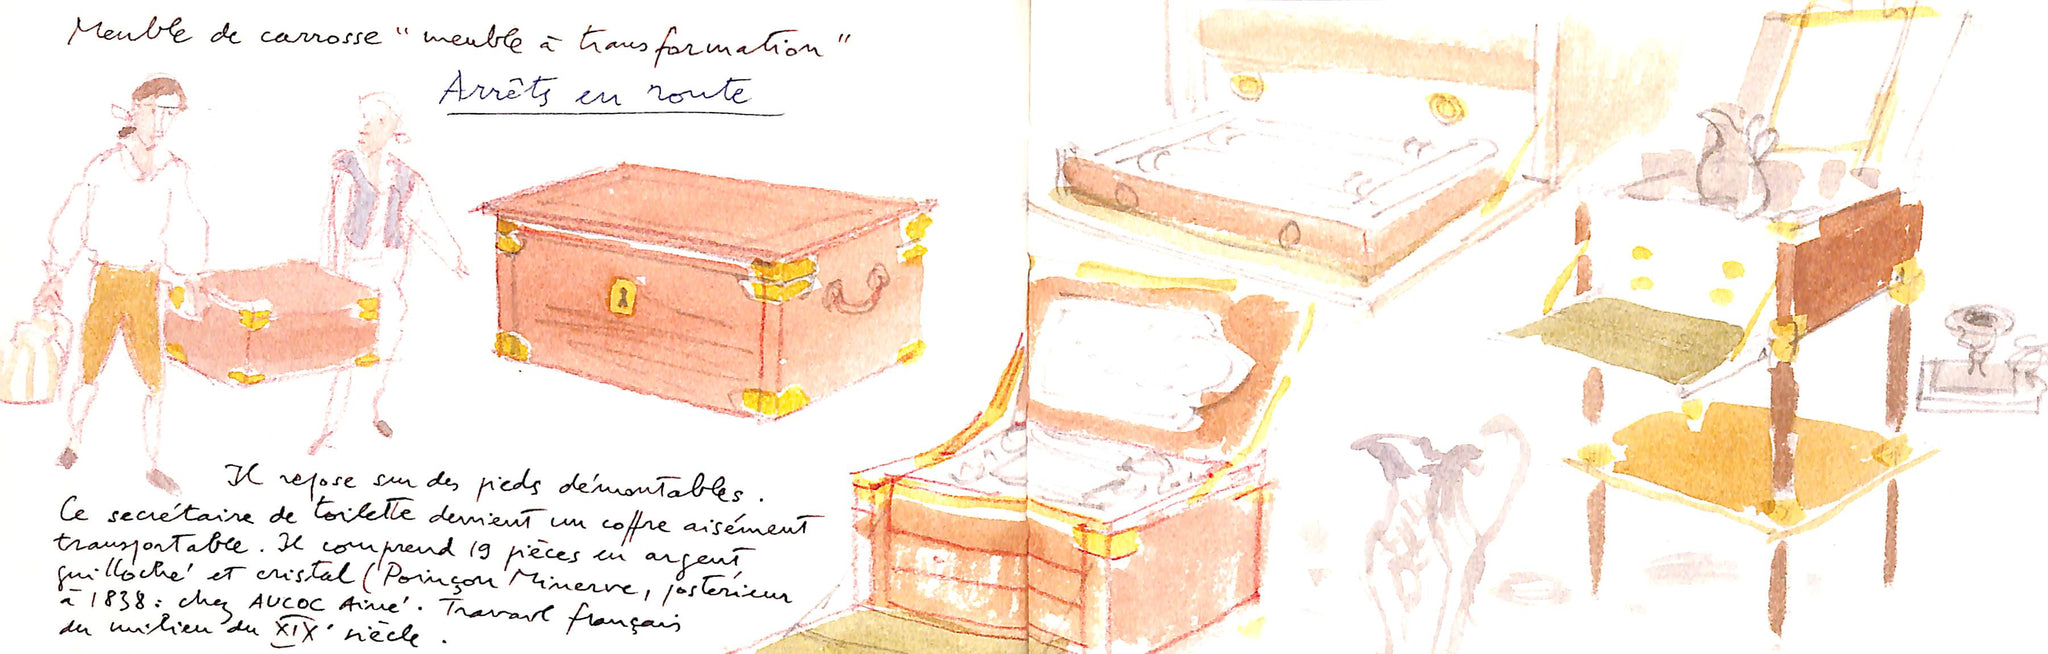 Meuble de carrosse "meuble à transformation"
Arrêts en route
Il repose sur des pieds démontables.
Ce secrétaire de toilette devient un coffre aisément
transportable. Il comprend 19 pièces en argent
guilloché et cristal (Poinçon Minerve, postérieur
à 1838 : chez AUCOC Aimé. Travail français
du milieu du XIX° siècle.